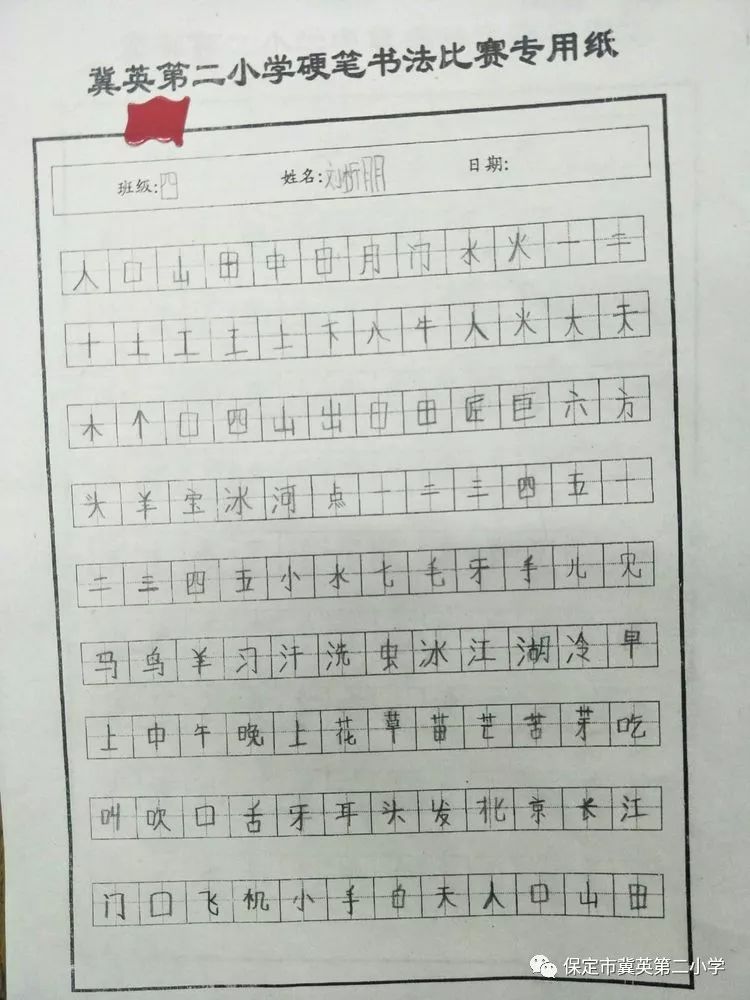 冀英第二小学硬笔书法比赛专用纸
班级:四 姓名:刘忻朋 日期:
人口山田中日月门水火一二
十土工王上下八牛人火大天
木个口四山出日田匠巨六方
头羊宝冰河点一二三四五十
二三四五小水七毛牙手儿见
马鸟羊习汗洗虫冰江湖冷早
上中午晚上花草苗芒苦茅吃
叫吹口舌牙耳头发北京长江
门口飞机小手白天人口山田
保定市冀英第二小学